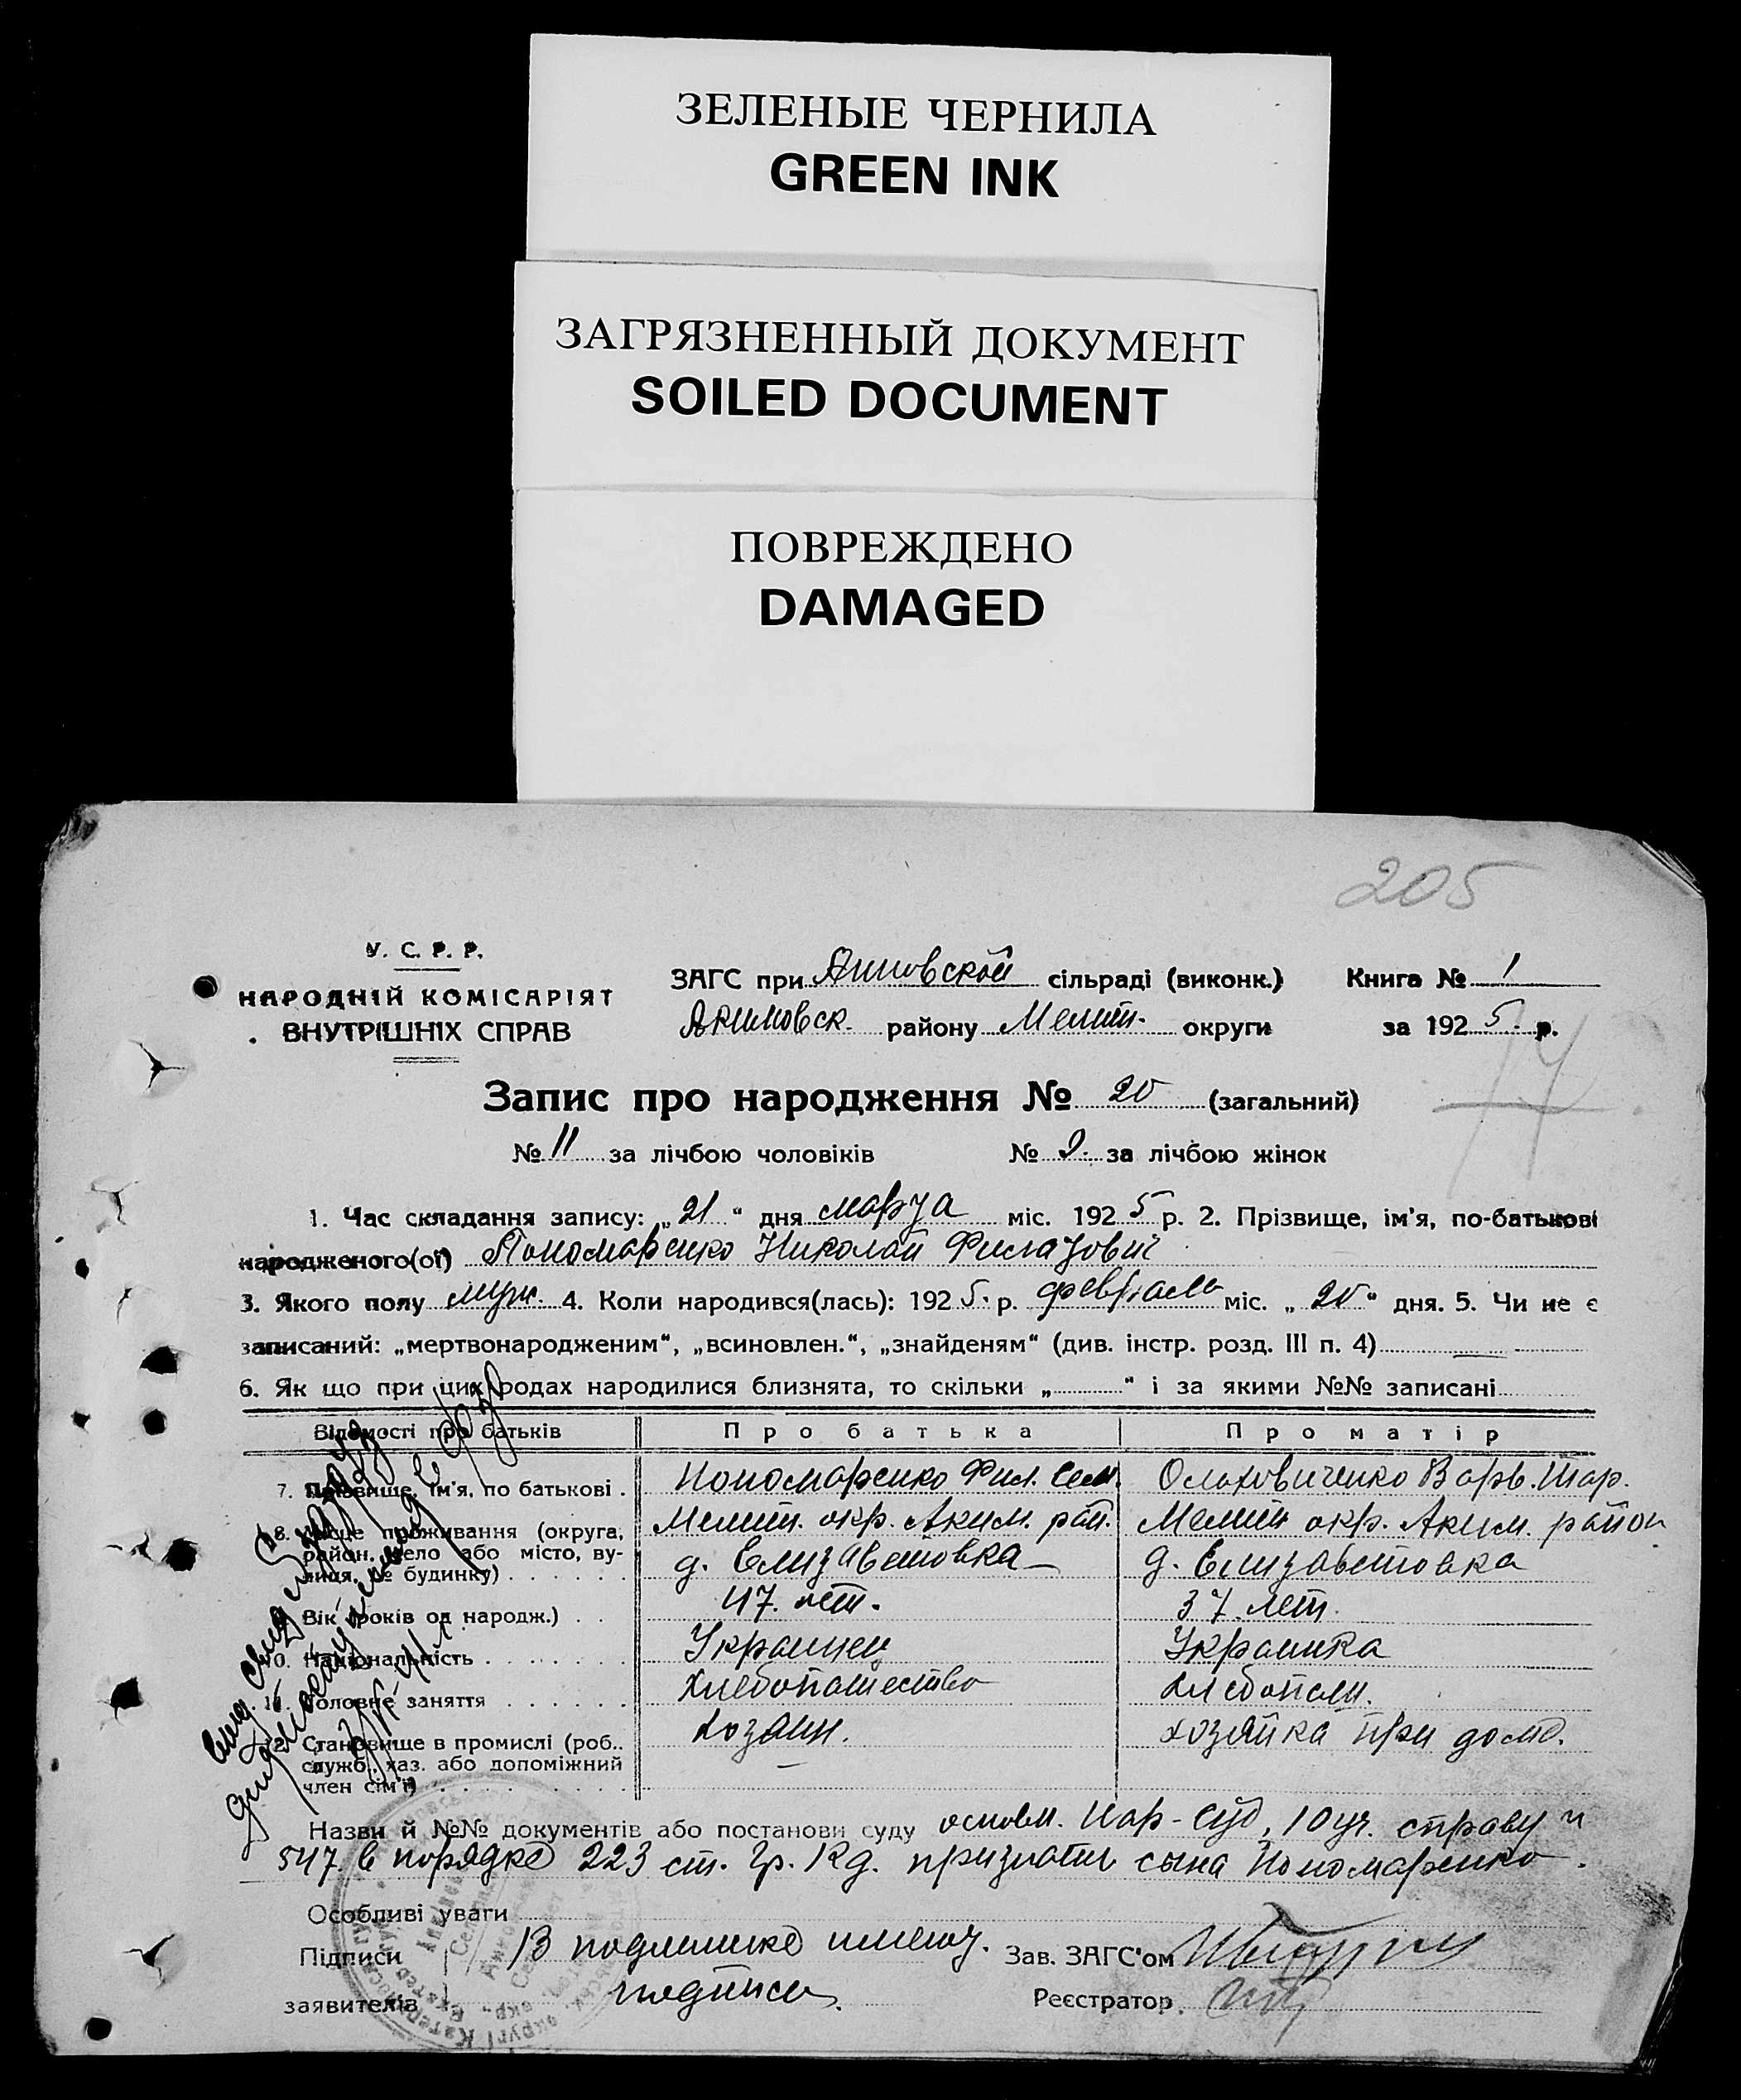 ЗЕЛЕНЫЕ ЧЕРНИЛА
GREEN INK
ЗАГРЯЗНЕННЫЙ ДОКУМЕНТ
SOILED DOCUMENT
ПОВРЕЖДЕНО
DAMAGED
205
У. С. Р. Р.
НАРОДНІЙ КОМІСАРІЯТ
ВНУТРІШНІХ СПРАВ
ЗАГС при Анновской сільраді (виконк.) Книга № 1
Акимовск. району Мелит. округи за 1925 р.
Запис про народження № 20 (загальний)
№ 11 за лічбою чоловіків № 9. за лічбою жінок
1. Час складання запису: „21" дня марта міс. 1925 р. 2. Прізвище, ім'я, по-батькові
народженого(ої) Пономаренко Николай Филатович
3. Якого полу муж. 4. Коли народився(лась): 1925. р. февраль міс. „20" дня. 5. Чи не є
записаний: „мертвонародженим", „всиновлен.", „знайденям" (див. інстр. розд. III п. 4)
6. Як що при цих родах народилися близнята, то скільки „ " і за якими №№ записані
Відомості про батьків Про батька Про матір
7. Прізвище, ім'я, по батькові . Пономаренко Фил. Сем. Варв.
8. Місце проживання (округа, Мелит. окр. Аким. рай. Мелит окр. Аким. район
район, село або місто, ву-
лиця, № будинку) д. Елизаветовка д. Елизаветовка
9. Вік (років од народж.) 47. лет. 37. лет.
10. Національність Украинец Украинка
11. Головне заняття Хлебопашество Хлебопаш.
12. Становище в промислі (роб., Хозяин. хозяйка при доме.
служб., хаз. або допоміжний
член сім'ї)
Назви й №№ документів або постанови суду основ. Нар-Суд, 10 уч. справу
547. в порядке 223 ст. Гр. Код. признать сына Пономаренко.
Особливі уваги
Підписи В подлинике имеют. Зав. ЗАГС'ом
заявителів подписи. Реєстратор